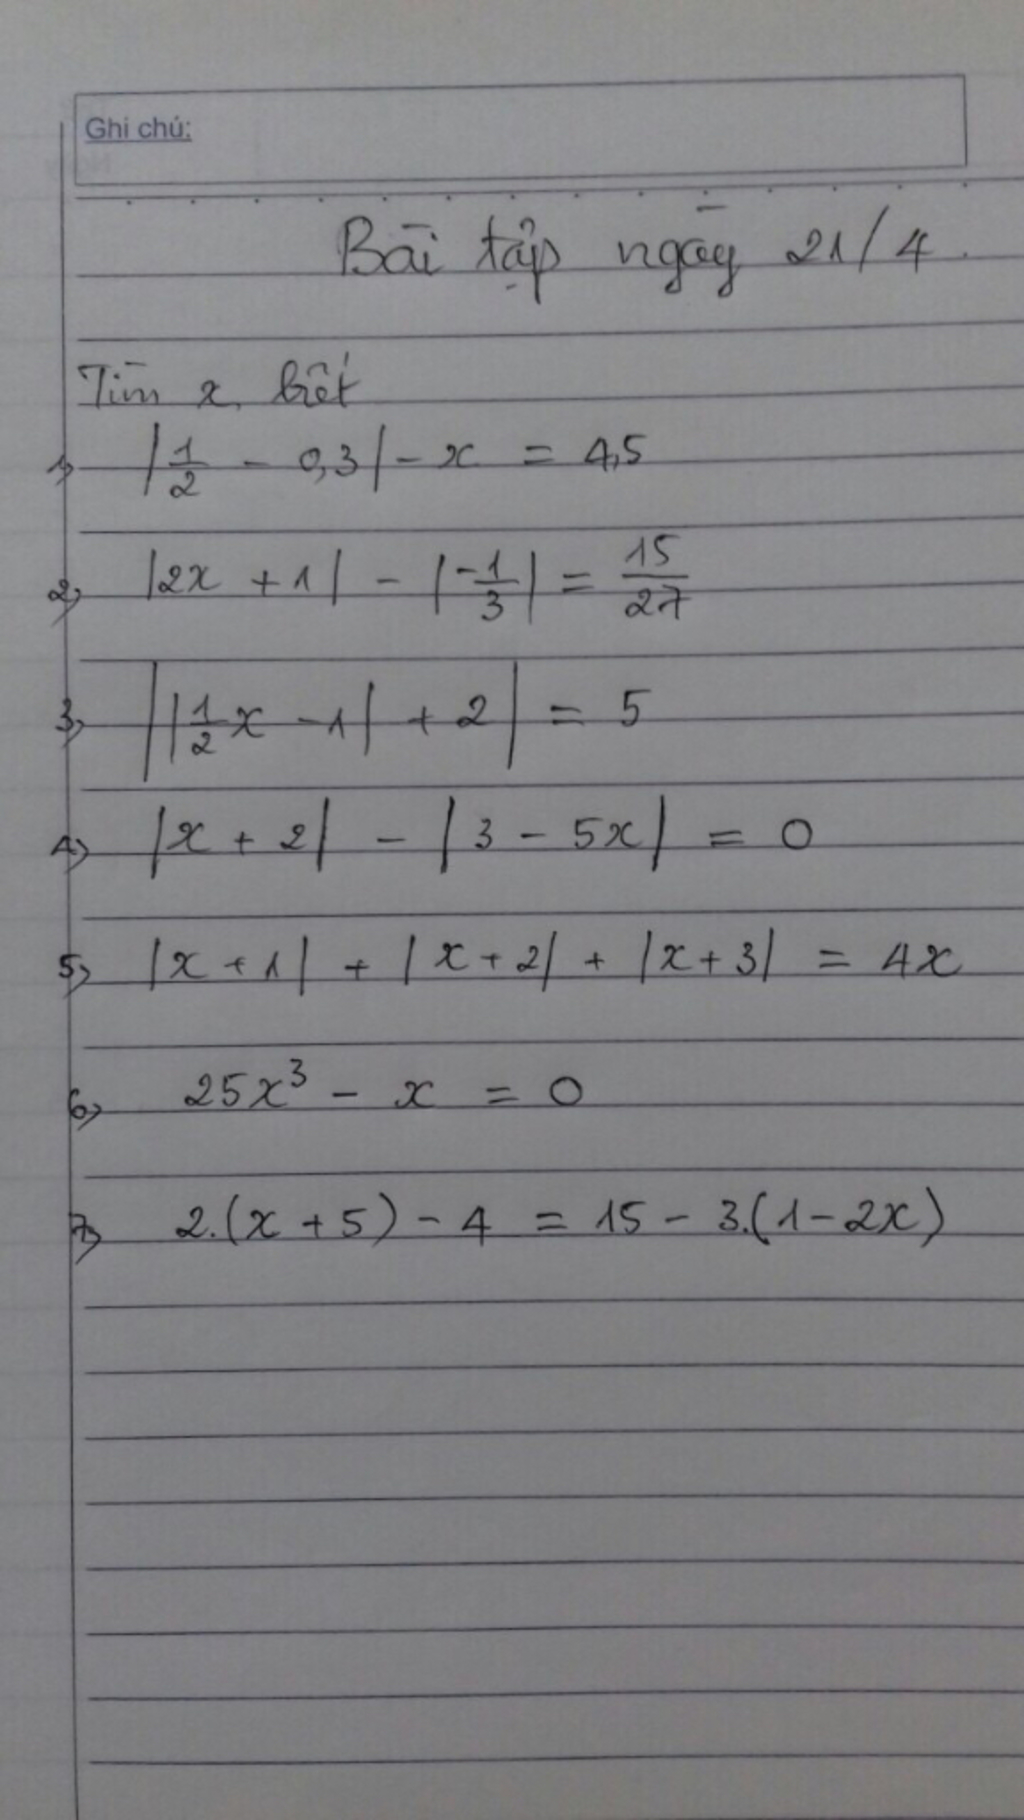 Ghi chú:
Bài tập ngày 21/4.
Tìm x, biết
1) |1/2 - 0,3| - x = 4,5
2) |2x + 1| - |-1/3| = 15/27
3) ||1/2x - 1| + 2| = 5
4) |x + 2| - |3 - 5x| = 0
5) |x + 1| + |x + 2| + |x + 3| = 4x
6) 25x³ - x = 0
7) 2.(x + 5) - 4 = 15 - 3.(1 - 2x)